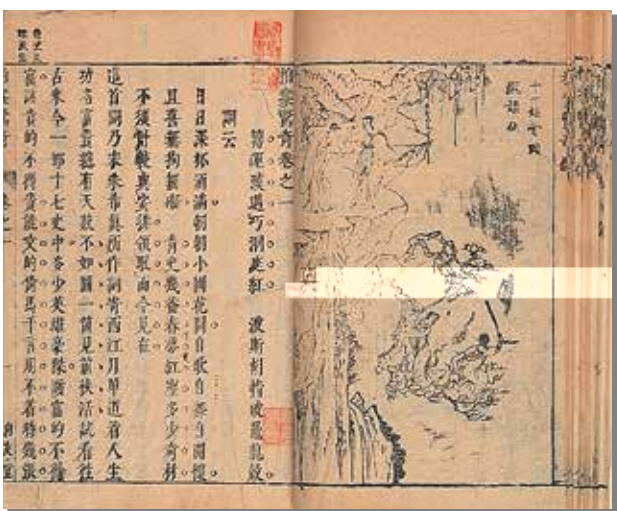 拍案驚奇卷之一
轉運漢遇巧洞庭紅　波斯胡指破鼉龍殼
詞云
日日深杯酒滿朝朝小圃花開自歌自舞自開懷
且喜無拘無礙　青史幾番春夢紅塵多少奇材
不須計較與安排領取而今見在
這首詞乃宋朱希真所作詞寄西江月單道着人生
功名富貴總有天數不如圖一箇見前快活試看往
古來今一部十七史中多少英雄豪傑該富的不得
富該貴的不得貴能文的倚馬千言用不着時幾張